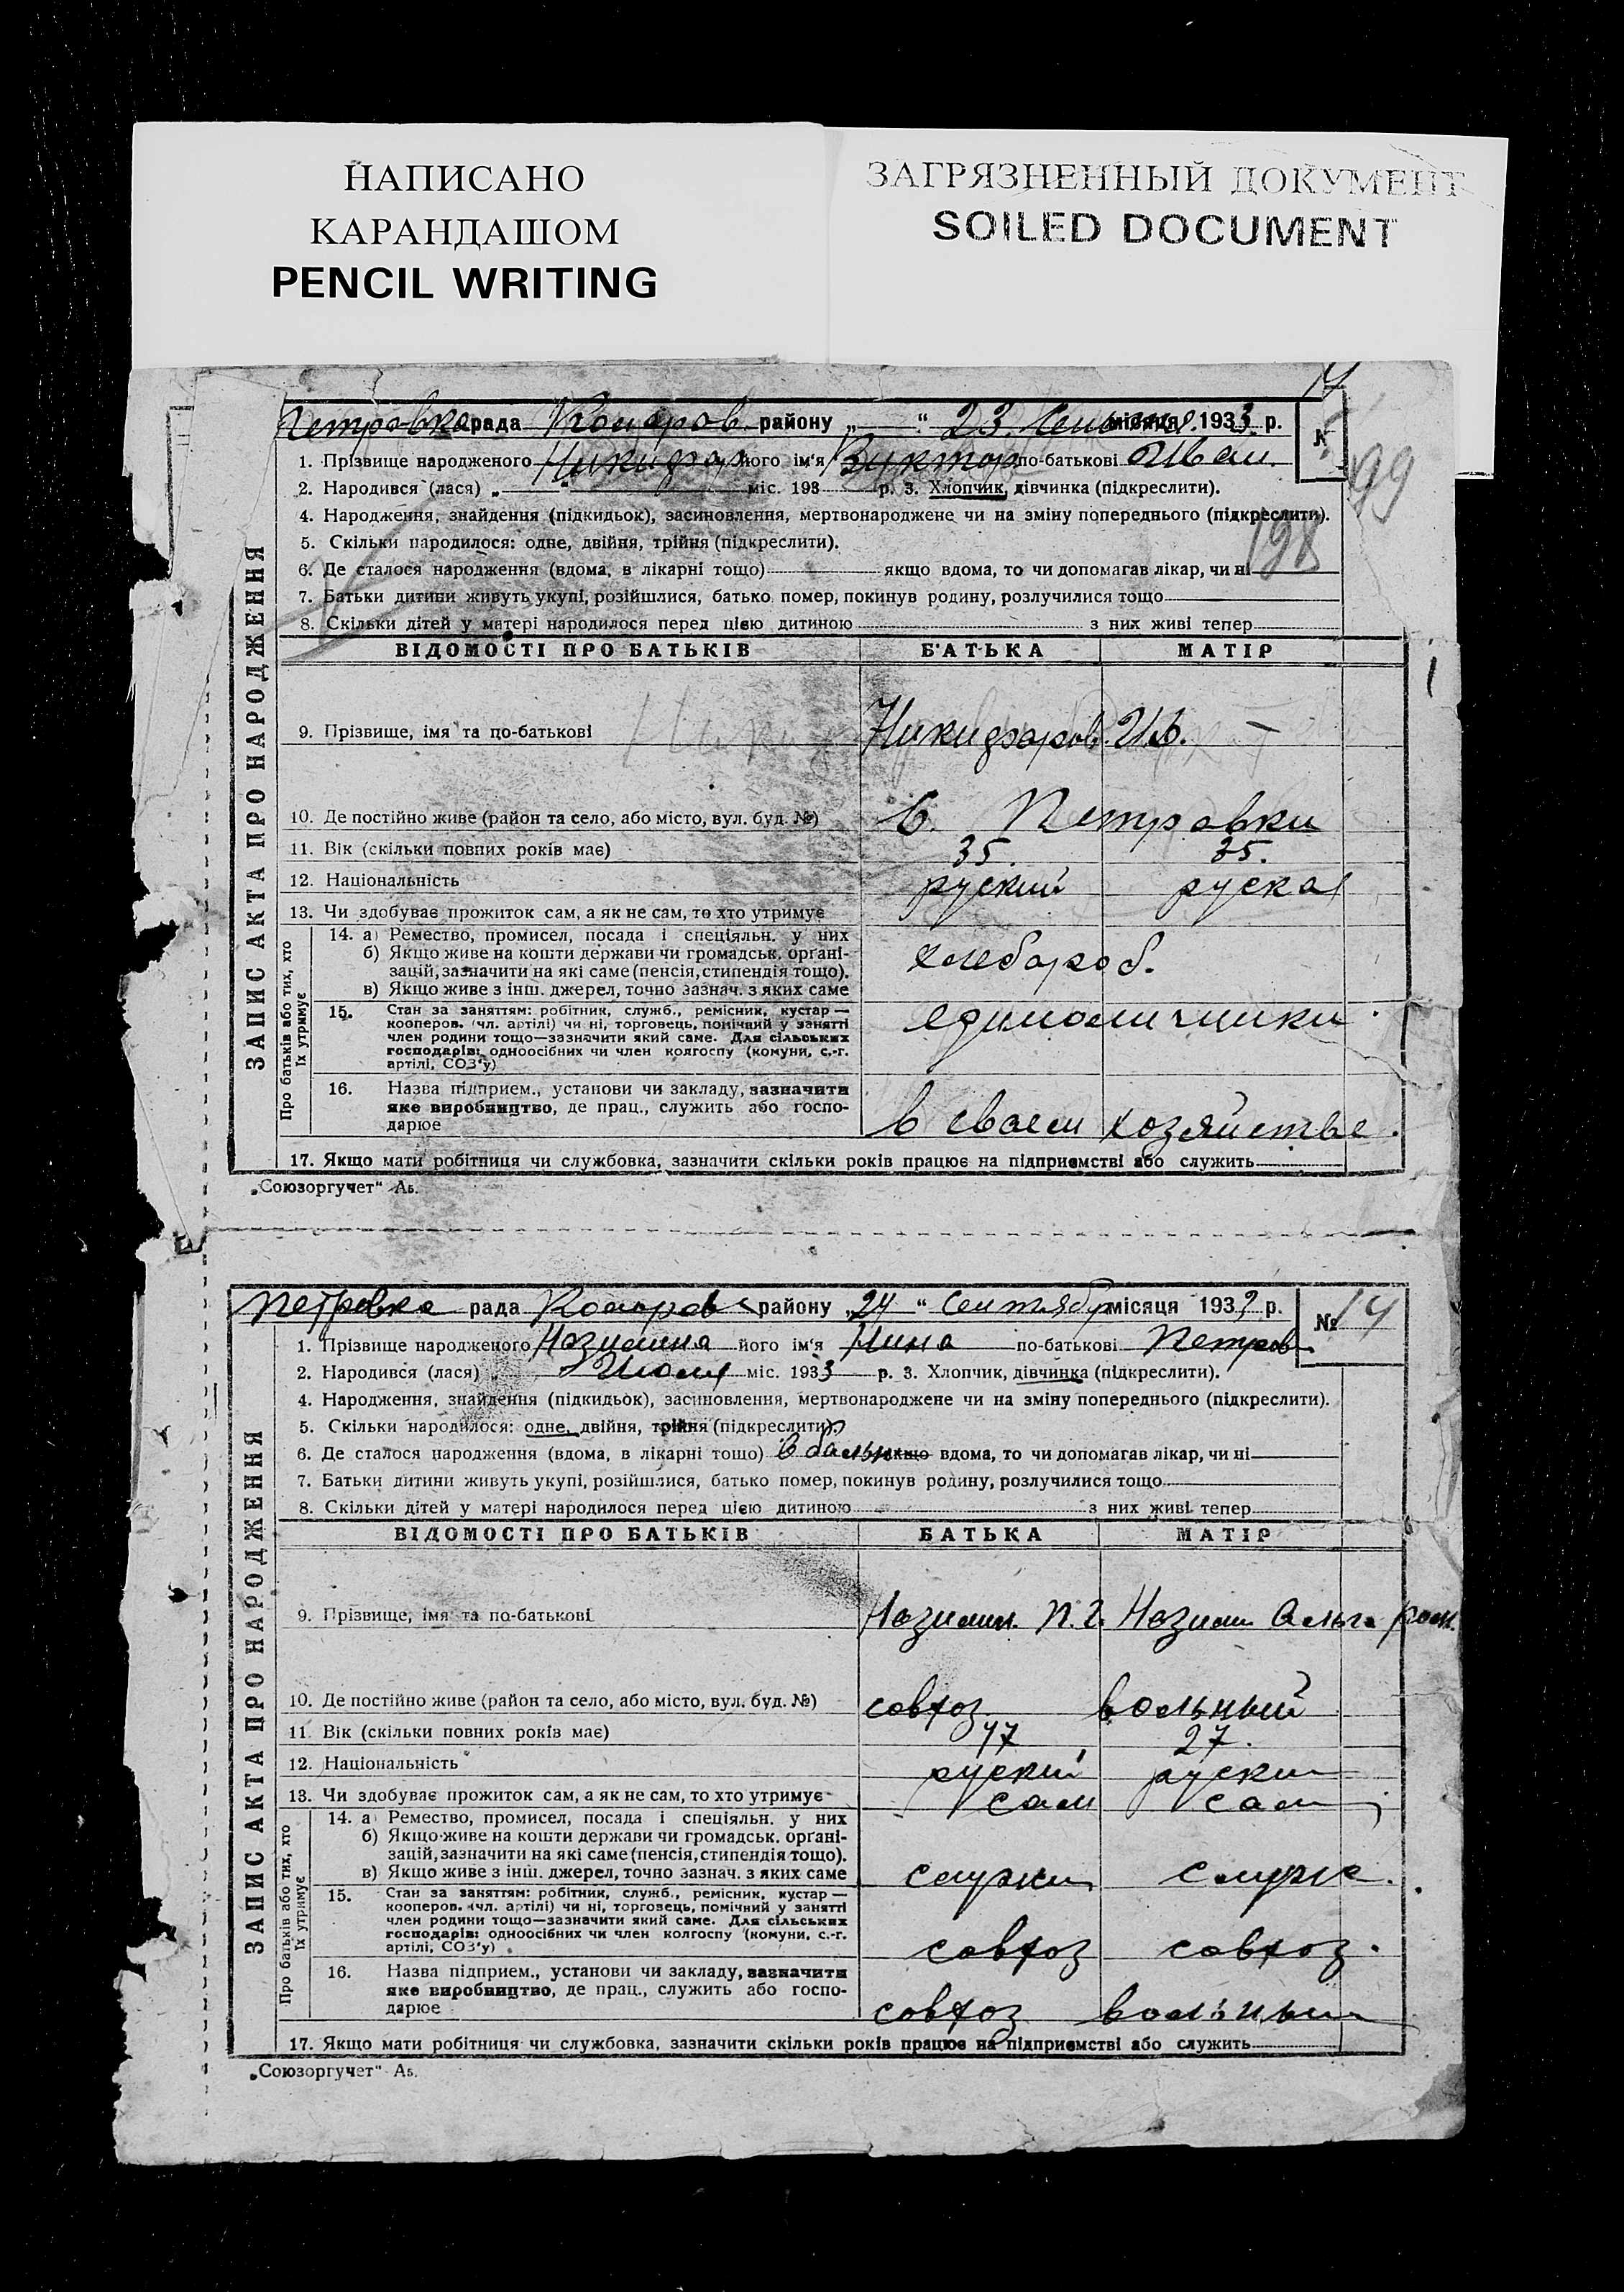 НАПИСАНО
КАРАНДАШОМ
PENCIL WRITING
ЗАГРЯЗНЕННЫЙ ДОКУМЕНТ
SOILED DOCUMENT
Петровка рада района „ “ 23. місяця 1933 р.
1. Прізвище народженого його ім'я Виктор по-батькові Иван.
2. Народився (лася) „ “ міс. 193 р. 3. Хлопчик, дівчинка (підкреслити).
99
4. Народження, знайдення (підкидьок), засиновлення, мертвонароджене чи на зміну попереднього (підкреслити).
5. Скільки народилося: одне, двійня, трійня (підкреслити).
198
6. Де сталося народження (вдома, в лікарні тощо) якщо вдома, то чи допомагав лікар, чи ні
7. Батьки дитини живуть укупі, розійшлися, батько помер, покинув родину, розлучилися тощо
8. Скільки дітей у матері народилося перед цією дитиною з них живі тепер
ЗАПИС АКТА ПРО НАРОДЖЕННЯ
ВІДОМОСТІ ПРО БАТЬКІВ БАТЬКА МАТІР
9. Прізвище, імя та по-батькові Никифоров. Ив. —
10. Де постійно живе (район та село, або місто, вул. буд. №) С. Петровки
11. Вік (скільки повних років має) 35. 35.
12. Національність руский руская
13. Чи здобуває прожиток сам, а як не сам, то хто утримує
Про батьків або тих, хто їх утримує
14. а) Ремество, промисел, посада і спеціяльн. у них
б) Якщо живе на кошти держави чи громадськ. орґані-
зацій, зазначити на які саме (пенсія, стипендія тощо).
в) Якщо живе з інш. джерел, точно зазнач. з яких саме
хлебароб.
15. Стан за заняттям: робітник, служб., ремісник, кустар —
кооперов. (чл. артілі) чи ні, торговець, помічний у занятті
член родини тощо—зазначити який саме. Для сільських
господарів: одноосібних чи член колгоспу (комуни, с.-г.
артілі, СОЗ'у)
единоличники
16. Назва підприєм., установи чи закладу, зазначити
яке виробництво, де прац., служить або госпо-
дарює
в сваем хозяйстве.
17. Якщо мати робітниця чи службовка, зазначити скільки років працює на підприємстві або служить
„Союзоргучет“ Аб.
Петровка рада района „24“ Сентября місяця 1933 р. № 14
1. Прізвище народженого Назимина його ім'я Нина по-батькові Петров.
2. Народився (лася) Июля міс. 1933 р. 3. Хлопчик, дівчинка (підкреслити).
4. Народження, знайдення (підкидьок), засиновлення, мертвонароджене чи на зміну попереднього (підкреслити).
5. Скільки народилося: одне, двійня, трійня (підкреслити).
6. Де сталося народження (вдома, в лікарні тощо) в больн якщо вдома, то чи допомагав лікар, чи ні
7. Батьки дитини живуть укупі, розійшлися, батько помер, покинув родину, розлучилися тощо
8. Скільки дітей у матері народилося перед цією дитиною з них живі тепер
ЗАПИС АКТА ПРО НАРОДЖЕННЯ
ВІДОМОСТІ ПРО БАТЬКІВ БАТЬКА МАТІР
9. Прізвище, імя та по-батькові Назимин. П. Г. Назими Ольга Ром.
10. Де постійно живе (район та село, або місто, вул. буд. №) совхоз вольный
11. Вік (скільки повних років має) 47 27.
12. Національність руский руски
13. Чи здобуває прожиток сам, а як не сам, то хто утримує сам сам
Про батьків або тих, хто їх утримує
14. а) Ремество, промисел, посада і спеціяльн. у них
б) Якщо живе на кошти держави чи громадськ. орґані-
зацій, зазначити на які саме (пенсія, стипендія тощо).
в) Якщо живе з інш. джерел, точно зазнач. з яких саме
15. Стан за заняттям: робітник, служб., ремісник, кустар —
кооперов. (чл. артілі) чи ні, торговець, помічний у занятті
член родини тощо—зазначити який саме. Для сільських
господарів: одноосібних чи член колгоспу (комуни, с.-г.
артілі, СОЗ'у)
совхоз совхоз.
16. Назва підприєм., установи чи закладу, зазначити
яке виробництво, де прац., служить або госпо-
дарює
совхоз вольный
17. Якщо мати робітниця чи службовка, зазначити скільки років працює на підприємстві або служить
„Союзоргучет“ Аб.